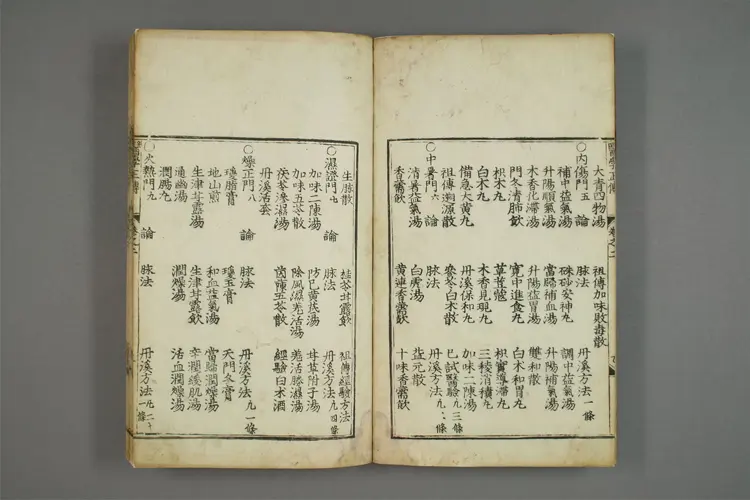 醫學正傳 卷之二
大青四物湯 祖傳加味敗毒散
〇內傷門五 論 脉法 丹溪方法一條
補中益氣湯 硃砂安神丸 調中益氣湯
升陽順氣湯 當歸補血湯 升陽補氣湯
木香化滯湯 升陽益胃湯 雙和散
門冬清肺飲 寬中進食丸 白木和胃丸
枳木丸 草荳蔲丸 枳實導滯丸
白木丸 木香見晛丸 三稜消積丸
備急大黃丸 丹溪保和丸 加味二陳湯
祖傳遡源散 參苓白木散 已試醫驗凡三條
〇中暑門六 論 脉法 丹溪方法凡六條
清暑益氣湯 白虎湯 益元散
香薷飲 黃連香薷飲 十味香薷飲
生脉散 桂苓甘露飲 祖傳經驗方法
〇濕證門七 論 脉法 丹溪方法凡四條
加味二陳湯 防已黃芪湯 甘草附子湯
加味五苓散 除風濕羌活湯 羌活勝濕湯
茯苓滲濕湯 茵蔯五苓散 經驗白木酒
丹溪活套
〇燥正門八 論 脉法 丹溪方法凡一條
瓊脂膏 瓊玉膏 天門冬膏
地山煎 和血益氣湯 當歸潤燥湯
生津甘露湯 生津甘露飲 辛潤緩肌湯
通幽湯 潤燥湯 活血潤燥湯
潤腸丸
〇火熱門九 論 脉法 丹溪方法凡二十一條
醫學正傳 卷之二